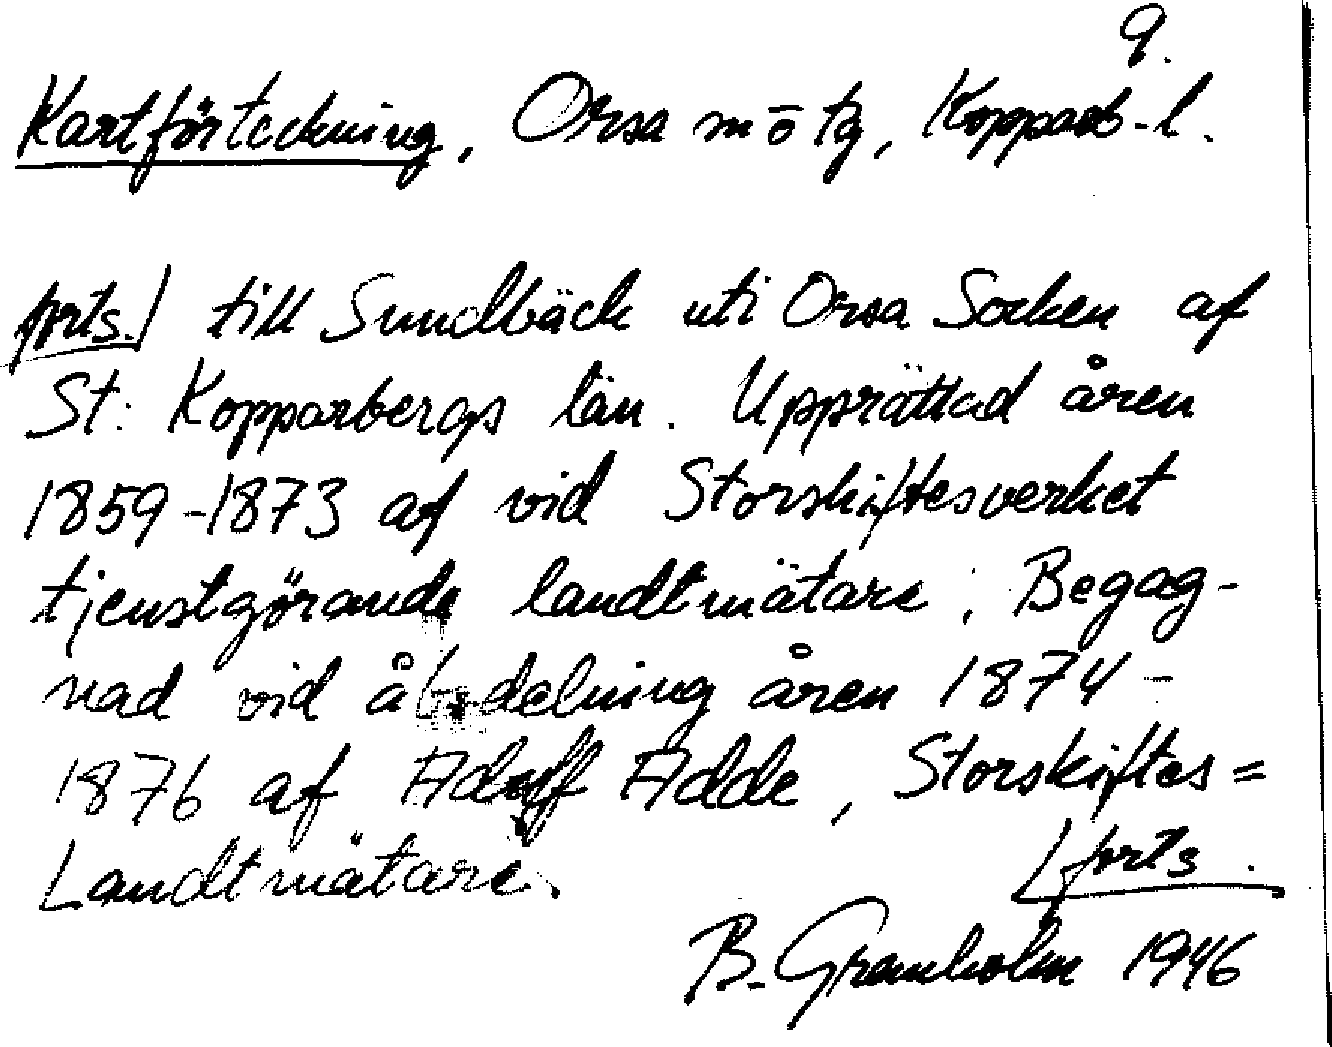 9.
Kartförteckning, Orsa m o tg, Kopparb-l.
forts./ till Sundbäck uti Orsa Socken af
St: Kopparbergs län. Upprättad åren
1859-1873 af vid Storskiftesverket
tjenstgörande landtmätare; Begag-
nad vid ådelning åren 1874-
1876 af Adolf Adde, Storskiftes=
Landtmätare.
/forts.
B. Granholm 1946